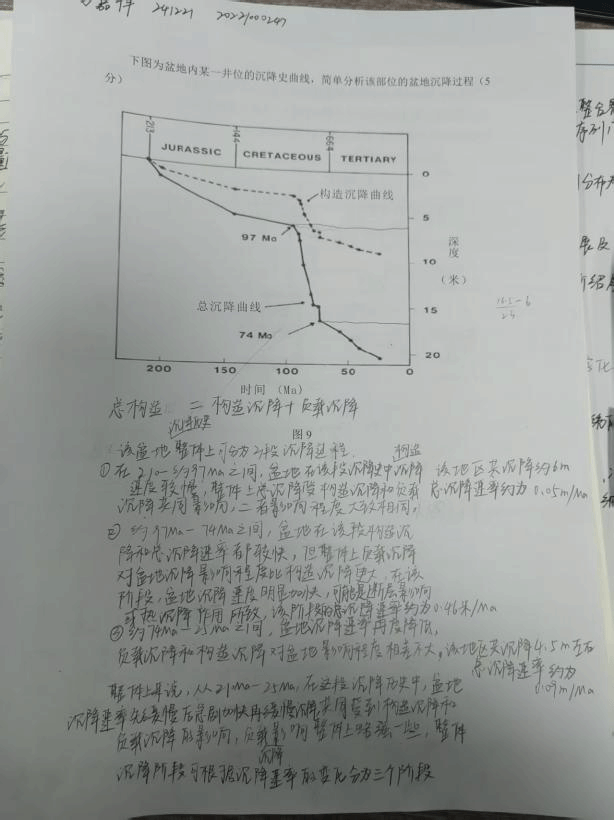 241221 2022/000247
下图为盆地内某一井位的沉降史曲线，简单分析该部位的盆地沉降过程（5
分）
213 144 66.4
JURASSIC CRETACEOUS TERTIARY
0
构造沉降曲线
5
97 Ma
深度
10
（米）
总沉降曲线
15
74 Ma
20
200 150 100 50 0
时间 （Ma）
总构造 = 构造沉降+负载沉降
图 9
该盆地整体上可分为3段沉降过程.
①在210-约97Ma之间，盆地在该段沉降史中沉降 该地区共沉降约6m
速度较慢，整体上总沉降受构造沉降和负载 总沉降速率约为0.05m/Ma
沉降共同影响，二者影响程度大致相同，
② 约97Ma-74Ma之间，盆地在该段构造沉
降和总沉降速率都较快，但整体上负载沉降
对盆地沉降影响程度比构造沉降更大，在该
阶段，盆地沉降速度明显加快，可能是断层影响
或热沉降作用所致，该阶段的总沉降速率约为0.46米/Ma
③约74Ma-25Ma之间，盆地沉降速率再度降低，
负载沉降和构造沉降对盆地影响程度相差不大，该地区共沉降4.5m左右
总沉降速率约为
0.09m/Ma
整体上来说，从21Ma-25Ma，在这段沉降历史中，盆地
沉降速率先缓慢后急剧加快再缓慢沉降，共同受到构造沉降和
负载沉降的影响，负载影响整体上略强一些，整体
沉降
沉降阶段可根据沉降速率的变化分为三个阶段